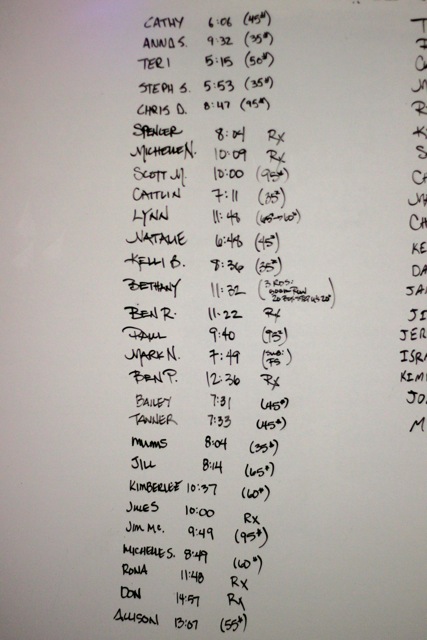 CATHY 6:06 (45#)
ANNA S. 9:32 (35#)
TERI 5:15 (50#)
STEPH S. 5:53 (35#)
CHRIS D. 8:47 (95#)
SPENCER 8:04 Rx
MICHELLE N. 10:09 Rx
SCOTT M. 10:00 (95#)
CAITLIN 7:11 (35#)
LYNN 11:48
NATALIE 6:48 (45#)
KELLI B. 8:36 (35#)
BETHANY 11:32 (3 RDS:
BEN R. 11:22 Rx
PAUL 9:40 (95#)
MARK N. 7:49
BEN P. 12:36 Rx
BAILEY 7:31 (45#)
TANNER 7:33 (45#)
MUMS 8:04 (35#)
JILL 8:14 (65#)
KIMBERLEE 10:37 (60#)
JULES 10:00 Rx
JIM MC. 9:49 (95#)
MICHELLE S. 8:49 (60#)
RONA 11:48 Rx
DON 14:57 Rx
ALLISON 13:07 (55#)